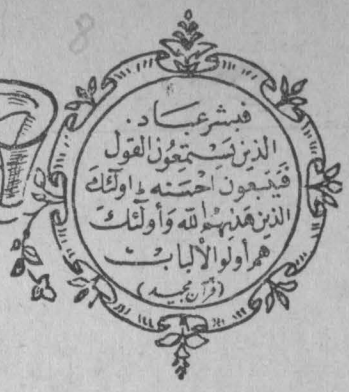 8
فبشر عباد.
الذین یستمعون القول
فیتبعون احسنه ط اولٓئک
الذین هدٰیهم الله و أولٓئک
هم أولوا الألباب
(قرآن مجید)